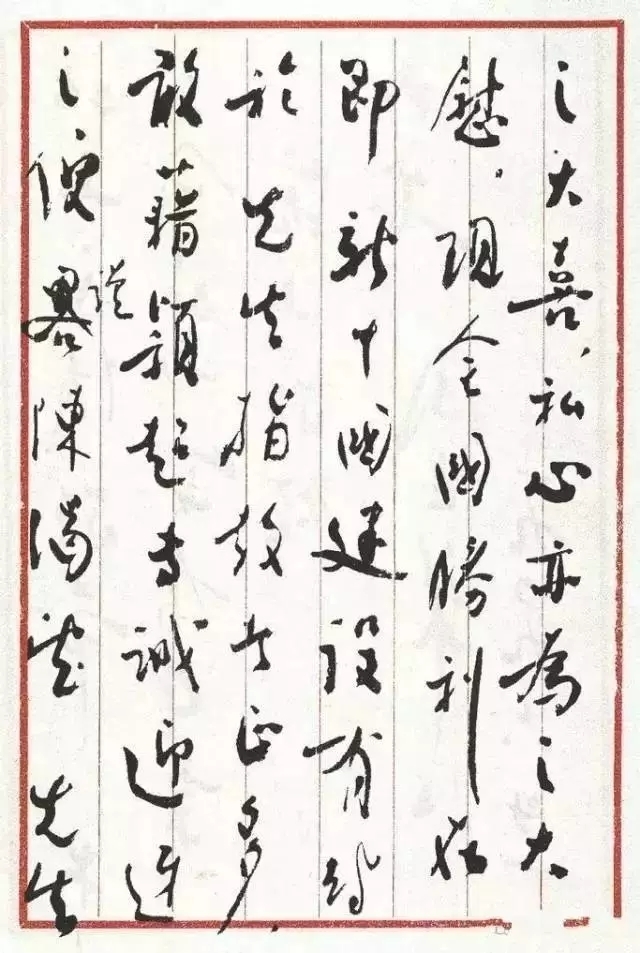 之大喜，私心亦為之大
慰。現全國勝利在
即新中國建設有待
於先生指教者正多，
敢藉穎超專誠迎迓
之便謹畧陳渴望先生